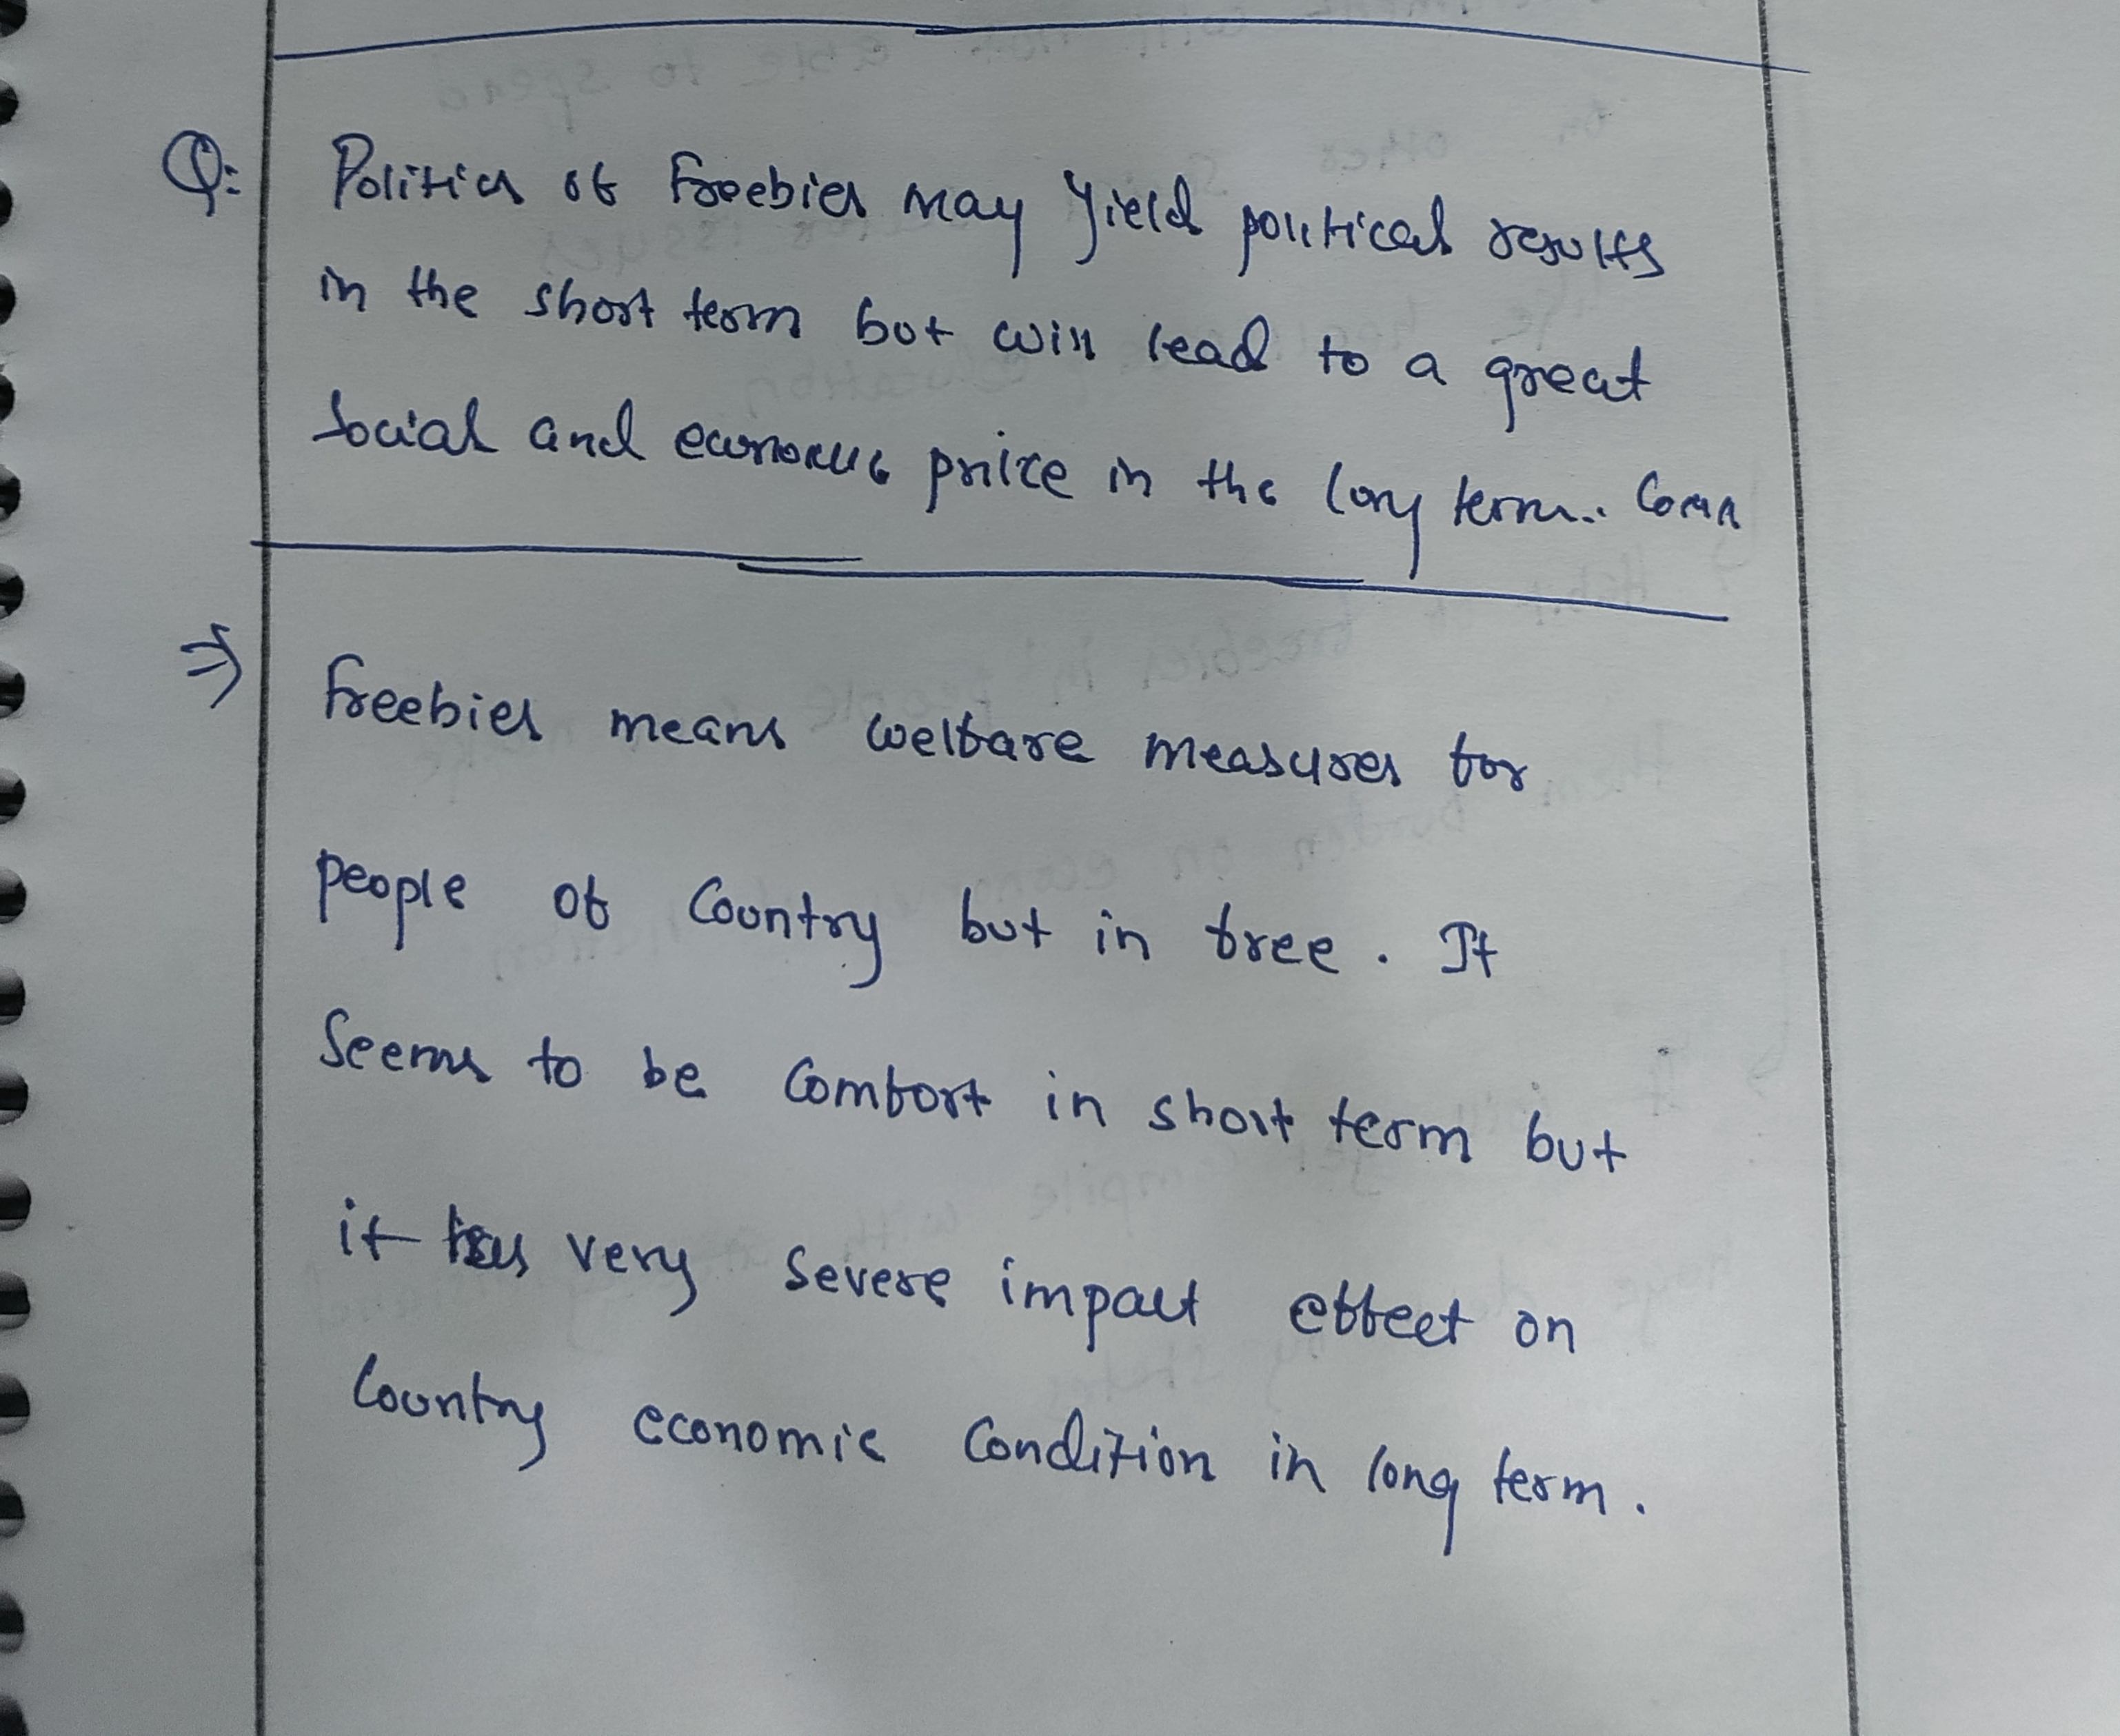 Q: Politics of freebies may yield political results
in the short term but will lead to a great
social and economic price in the long term. Comm
⇒ Freebies means welfare measures for
people of Country but in free. It
Seems to be Comfort in short term but
it has very severe impact effect on
Country economic Condition in long term.